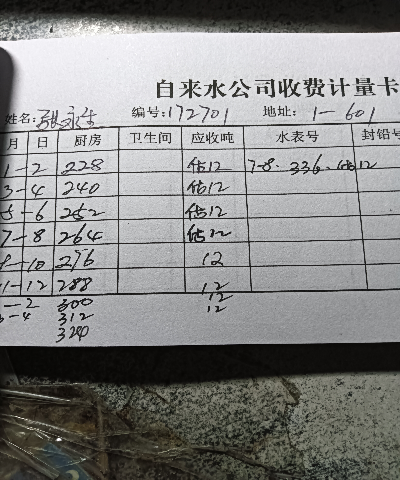 自来水公司收费计量卡
姓名: 张永生 编号: 172701 地址: 1-601
月 日 厨房 卫生间 应收吨 水表号 封铅号
1-2 228 估12 7-8. 336. 估12
3-4 240 估12
5-6 252 估12
7-8 264 估12
9-10 276 12
11-12 288 12
1-2 300 12
3-4 312 12
320